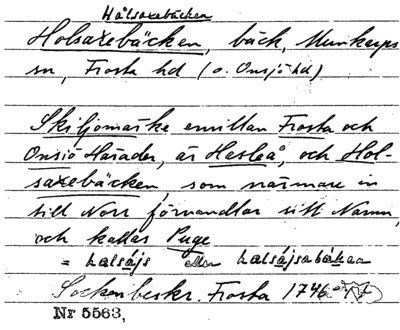 Hålsaxebäcken
Holsaxebäcken, bäck, Munkarps
sn, Frosta hd (o. Onsjö hd)
Skiljomärke emillan Frosta och
Onsiö Härader, är Hasleå, och Hol-
saxebäcken, som närmare in
till Norr förvandlar sitt Namn,
och kallas Puge
= Lalsájs eller Lalsájsabákan
Sockenbeskr. Frosta 1746
Nr 5563,